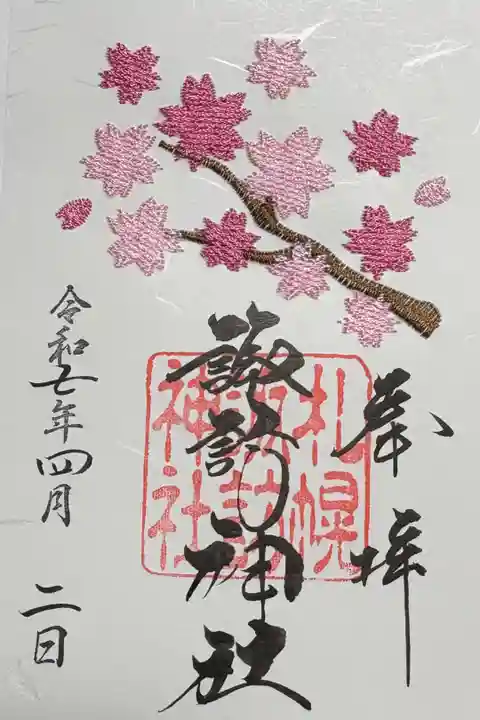 奉拝
諏訪神社
札幌
諏訪
神社
令和七年四月
二日